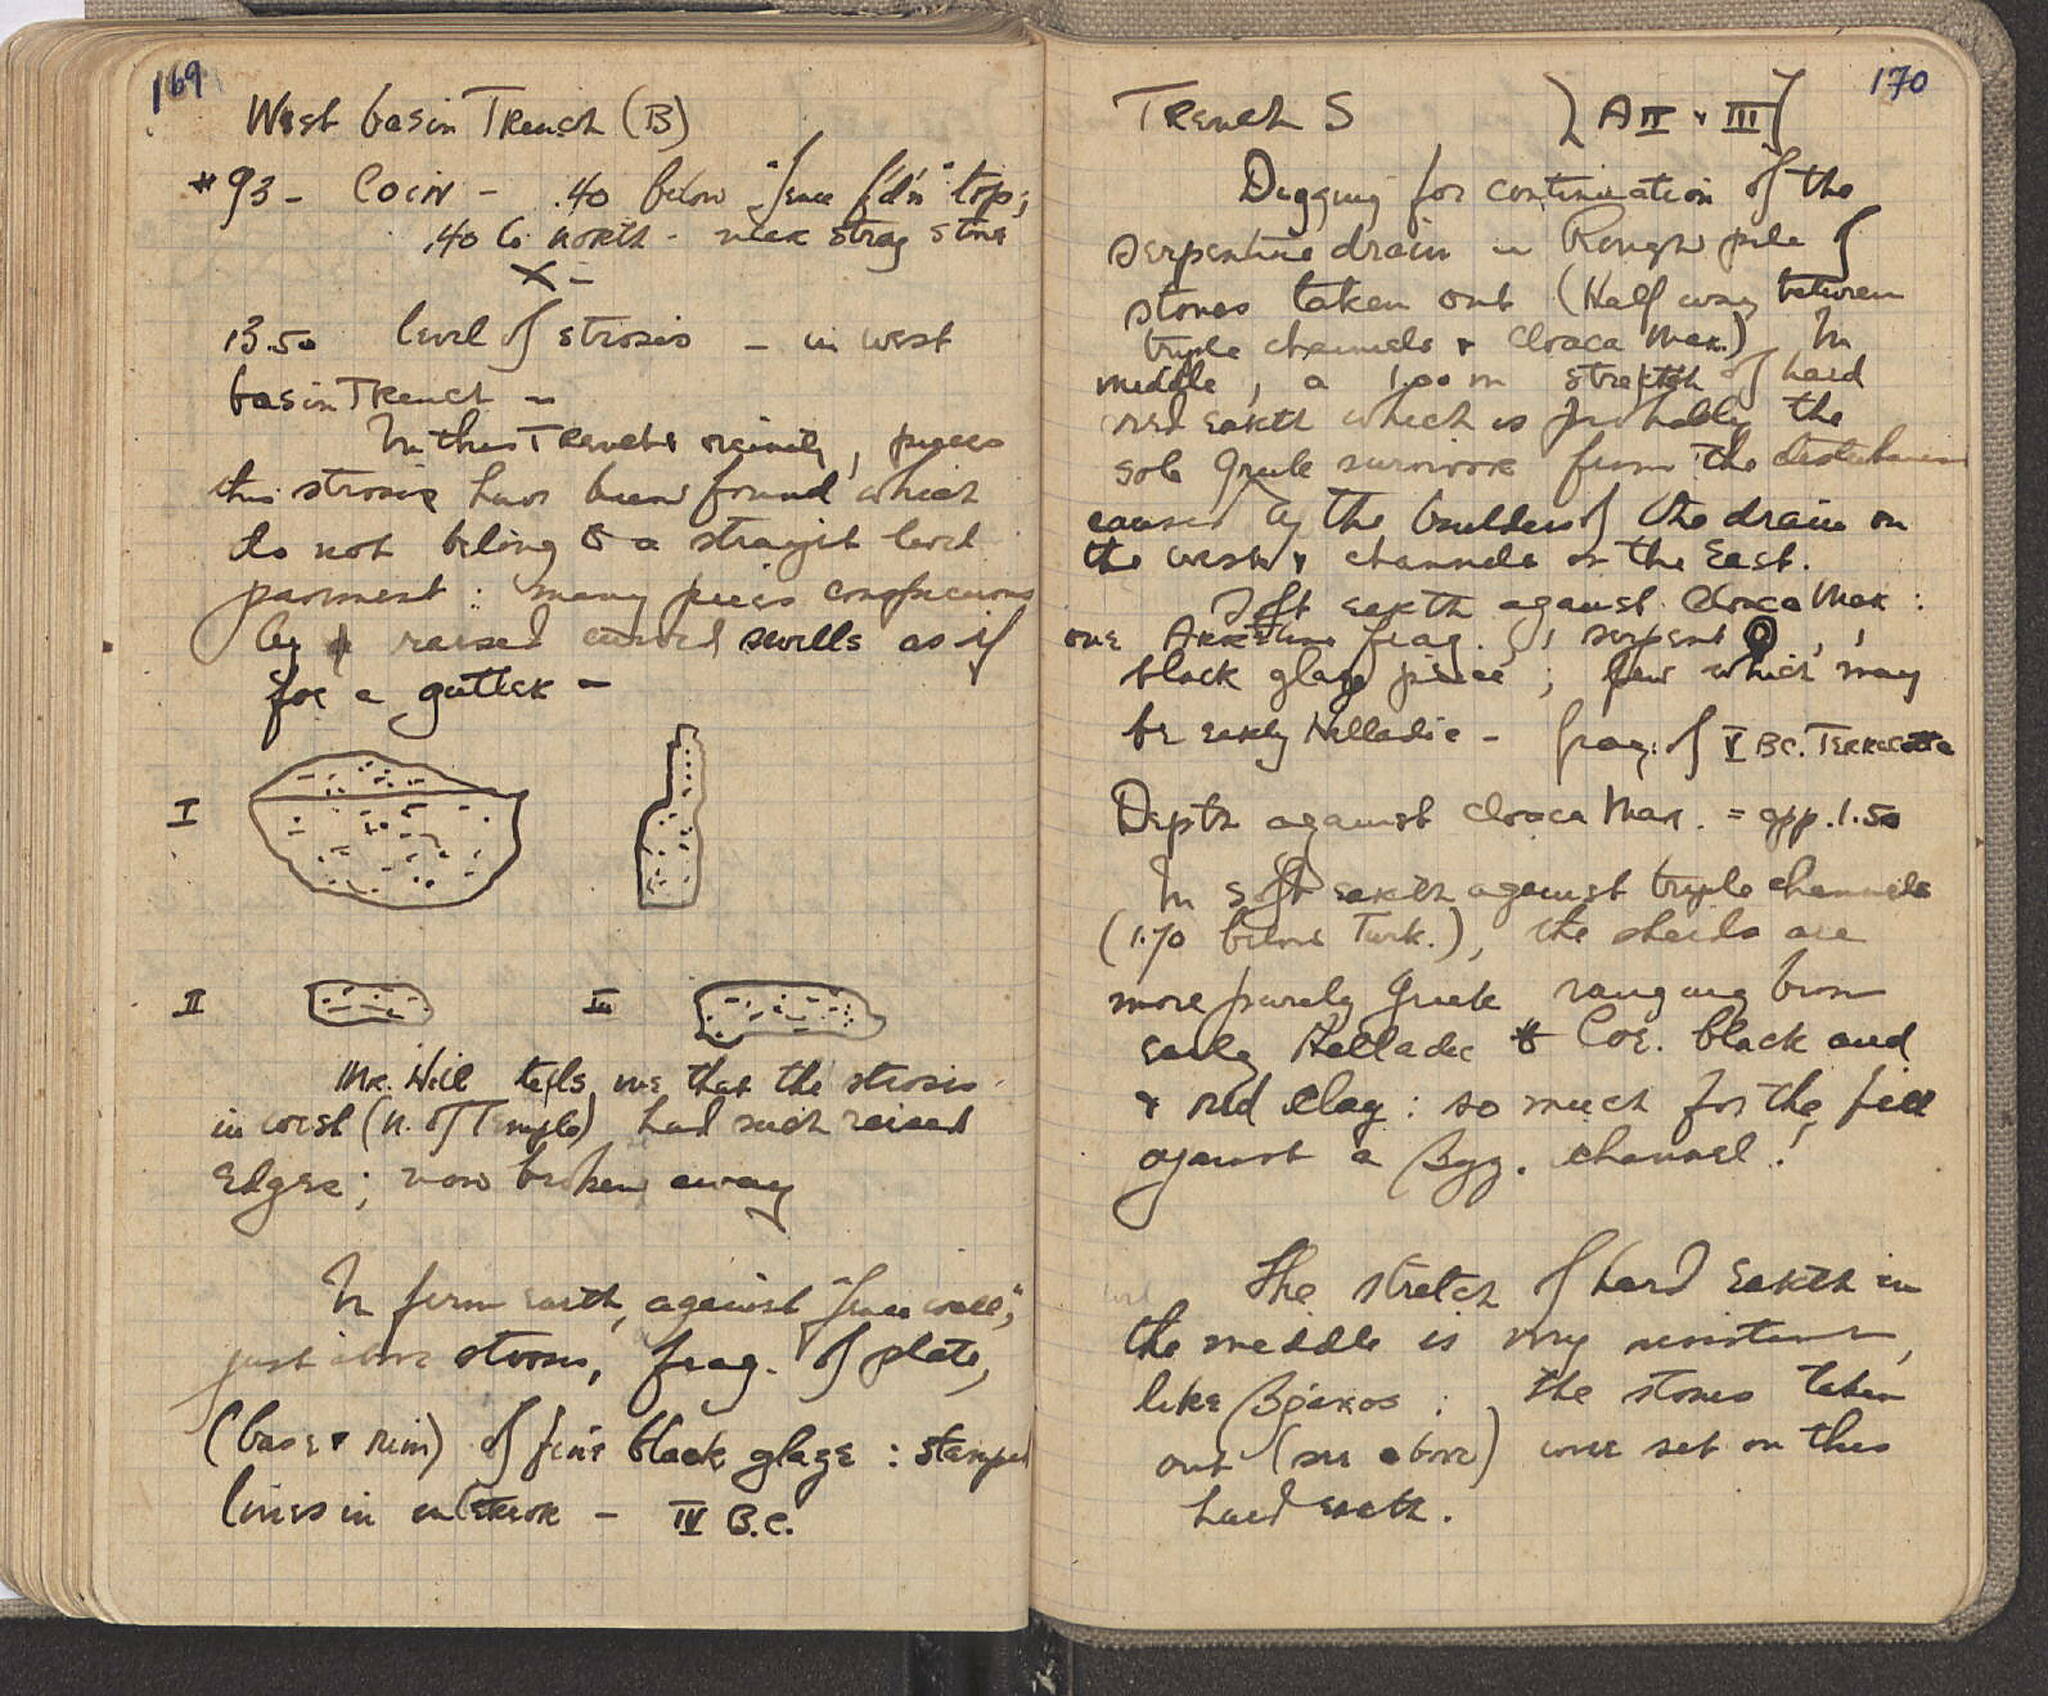 169
West basin Trench (B)
#93 - Coin - .40 below "fence f'd'n" top;
.40 to north - near strag stone
X -
13.50 level of strosis - in west
basin Trench -
In this Trench & vicinity, pieces
this strosis have been found which
do not belong to a straight level
pavement : many pieces conspicuous
by raised curved swells as if
for a gutter -
I
II III
Mr. Hill tells me that the strosis
in west (N. of Temple) had such raised
edges; now broken away
In firm earth, against "fence wall",
just above strosis, frag. of plate,
(base & rim) of fine black glaze : stamped
lines in interior - IV B.C.
170
Trench S (A II & III)
Digging for continuation of the
serpentine drain Rough pile of
stones taken out (Half way between
triple channels & Cloaca Max.) In
middle, a 1.00 m stretch of hard
red earth which is probably the
sole Greek survivor from the disturbance
caused by the builders of the drain on
the west & channels on the East.
Soft earth against Cloaca Max :
one Arretine frag. serpent
black glaze piece ; few which may
be early Helladic - frag. of V B.C. Terracotta
Depth against Cloaca Max. = app. 1.50
In soft earth against triple channels
(1.70 below Turk.), the sherds are
more purely Greek ranging from
early Helladic to Cor. black and
& red clay : so much for the fill
against a Byz. channel !
The stretch of hard earth in
the middle is very resistant,
like Βράχος : the stones taken
out (see above) were set on this
hard earth.